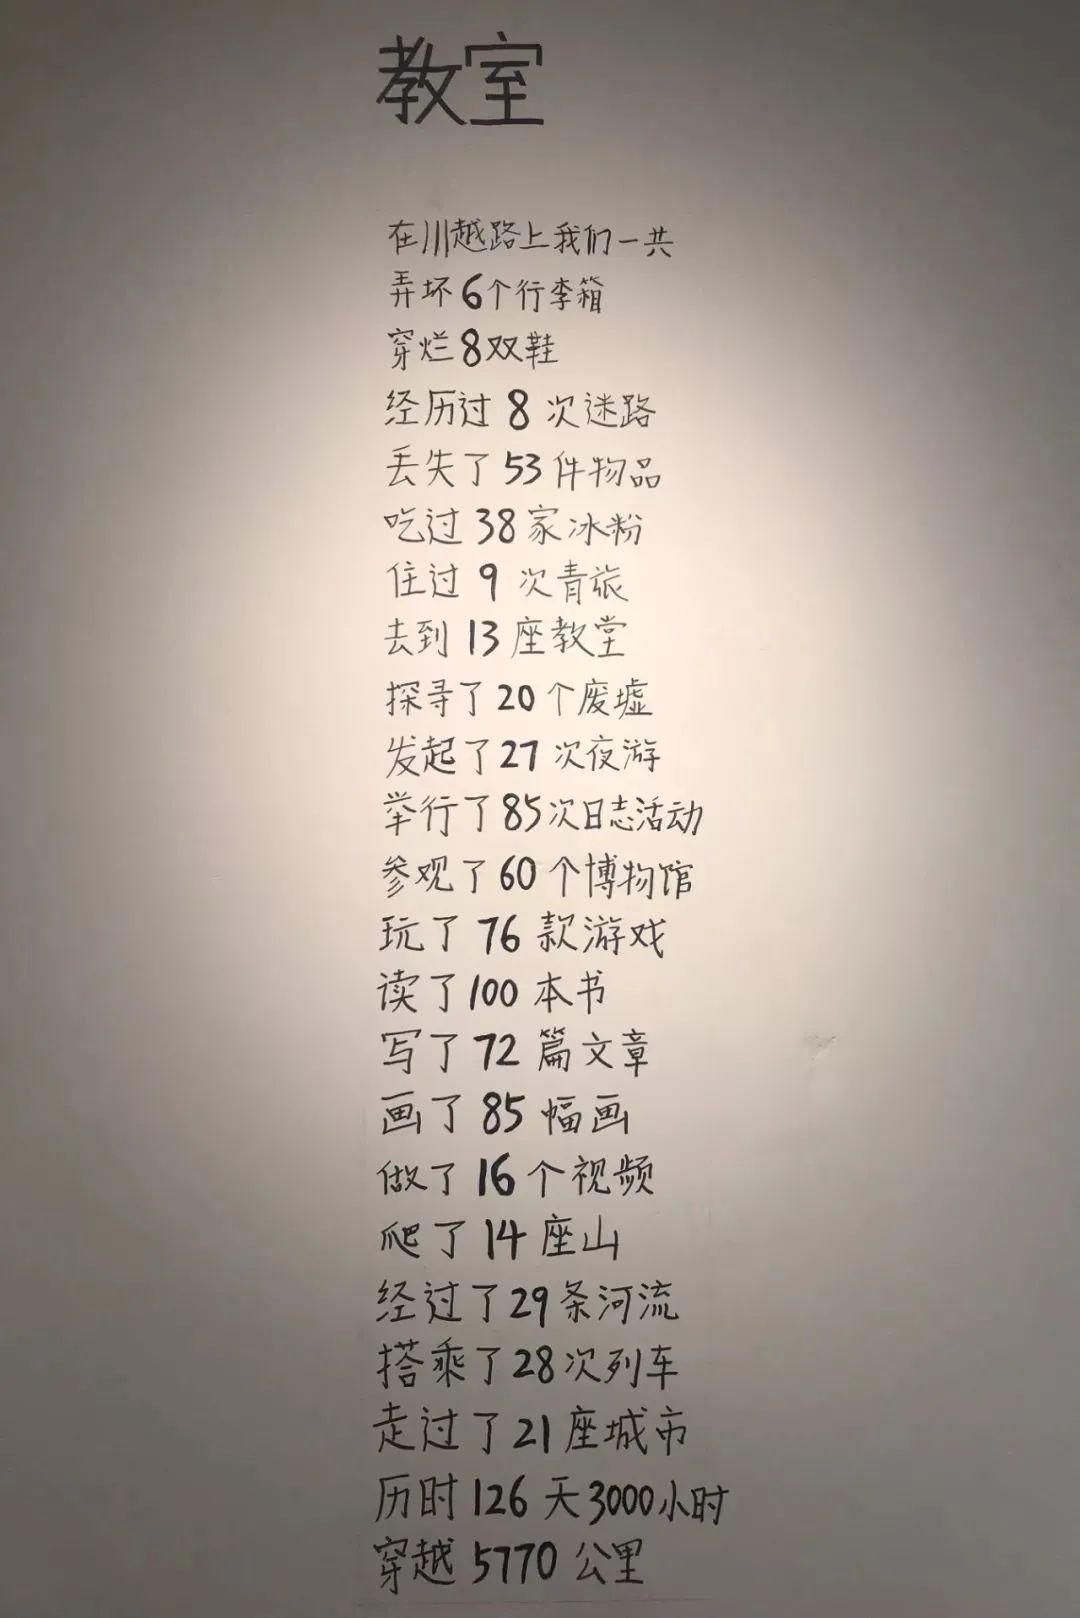 教室
在川越路上我们一共
弄坏6个行李箱
穿烂8双鞋
经历过8次迷路
丢失了53件物品
吃过38家冰粉
住过9次青旅
去到13座教堂
探寻了20个废墟
发起了27次夜游
举行了85次日志活动
参观了60个博物馆
玩了76款游戏
读了100本书
写了72篇文章
画了85幅画
做了16个视频
爬了14座山
经过了29条河流
搭乘了28次列车
走过了21座城市
历时126天3000小时
穿越5770公里